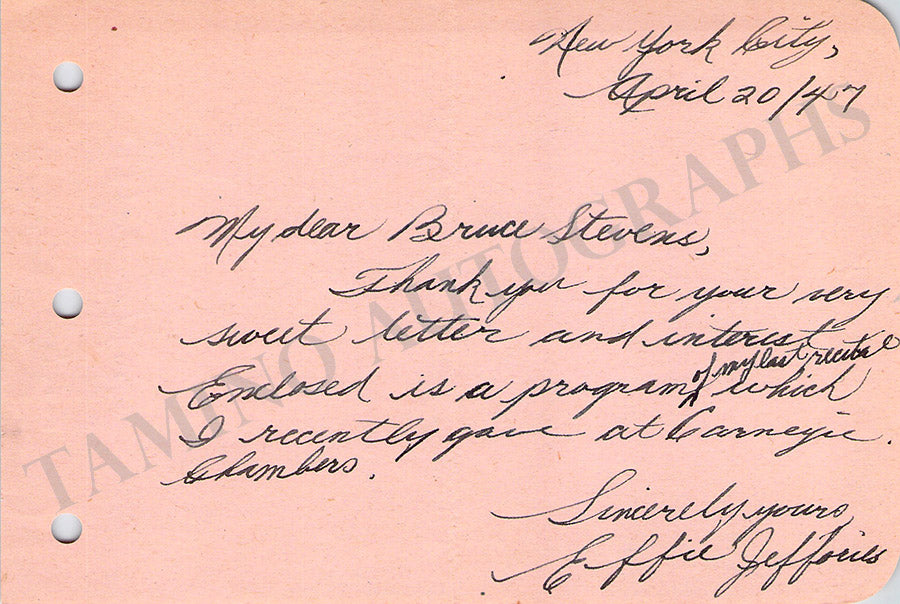 New York City,
April 20/47
My dear Bruce Stevens,
Thank you for your very
sweet letter and interest
of my last recital
Enclosed is a program which
I recently gave at Carnegie
Chambers.
Sincerely yours,
Effie Jeffories
TAMINO AUTOGRAPHS